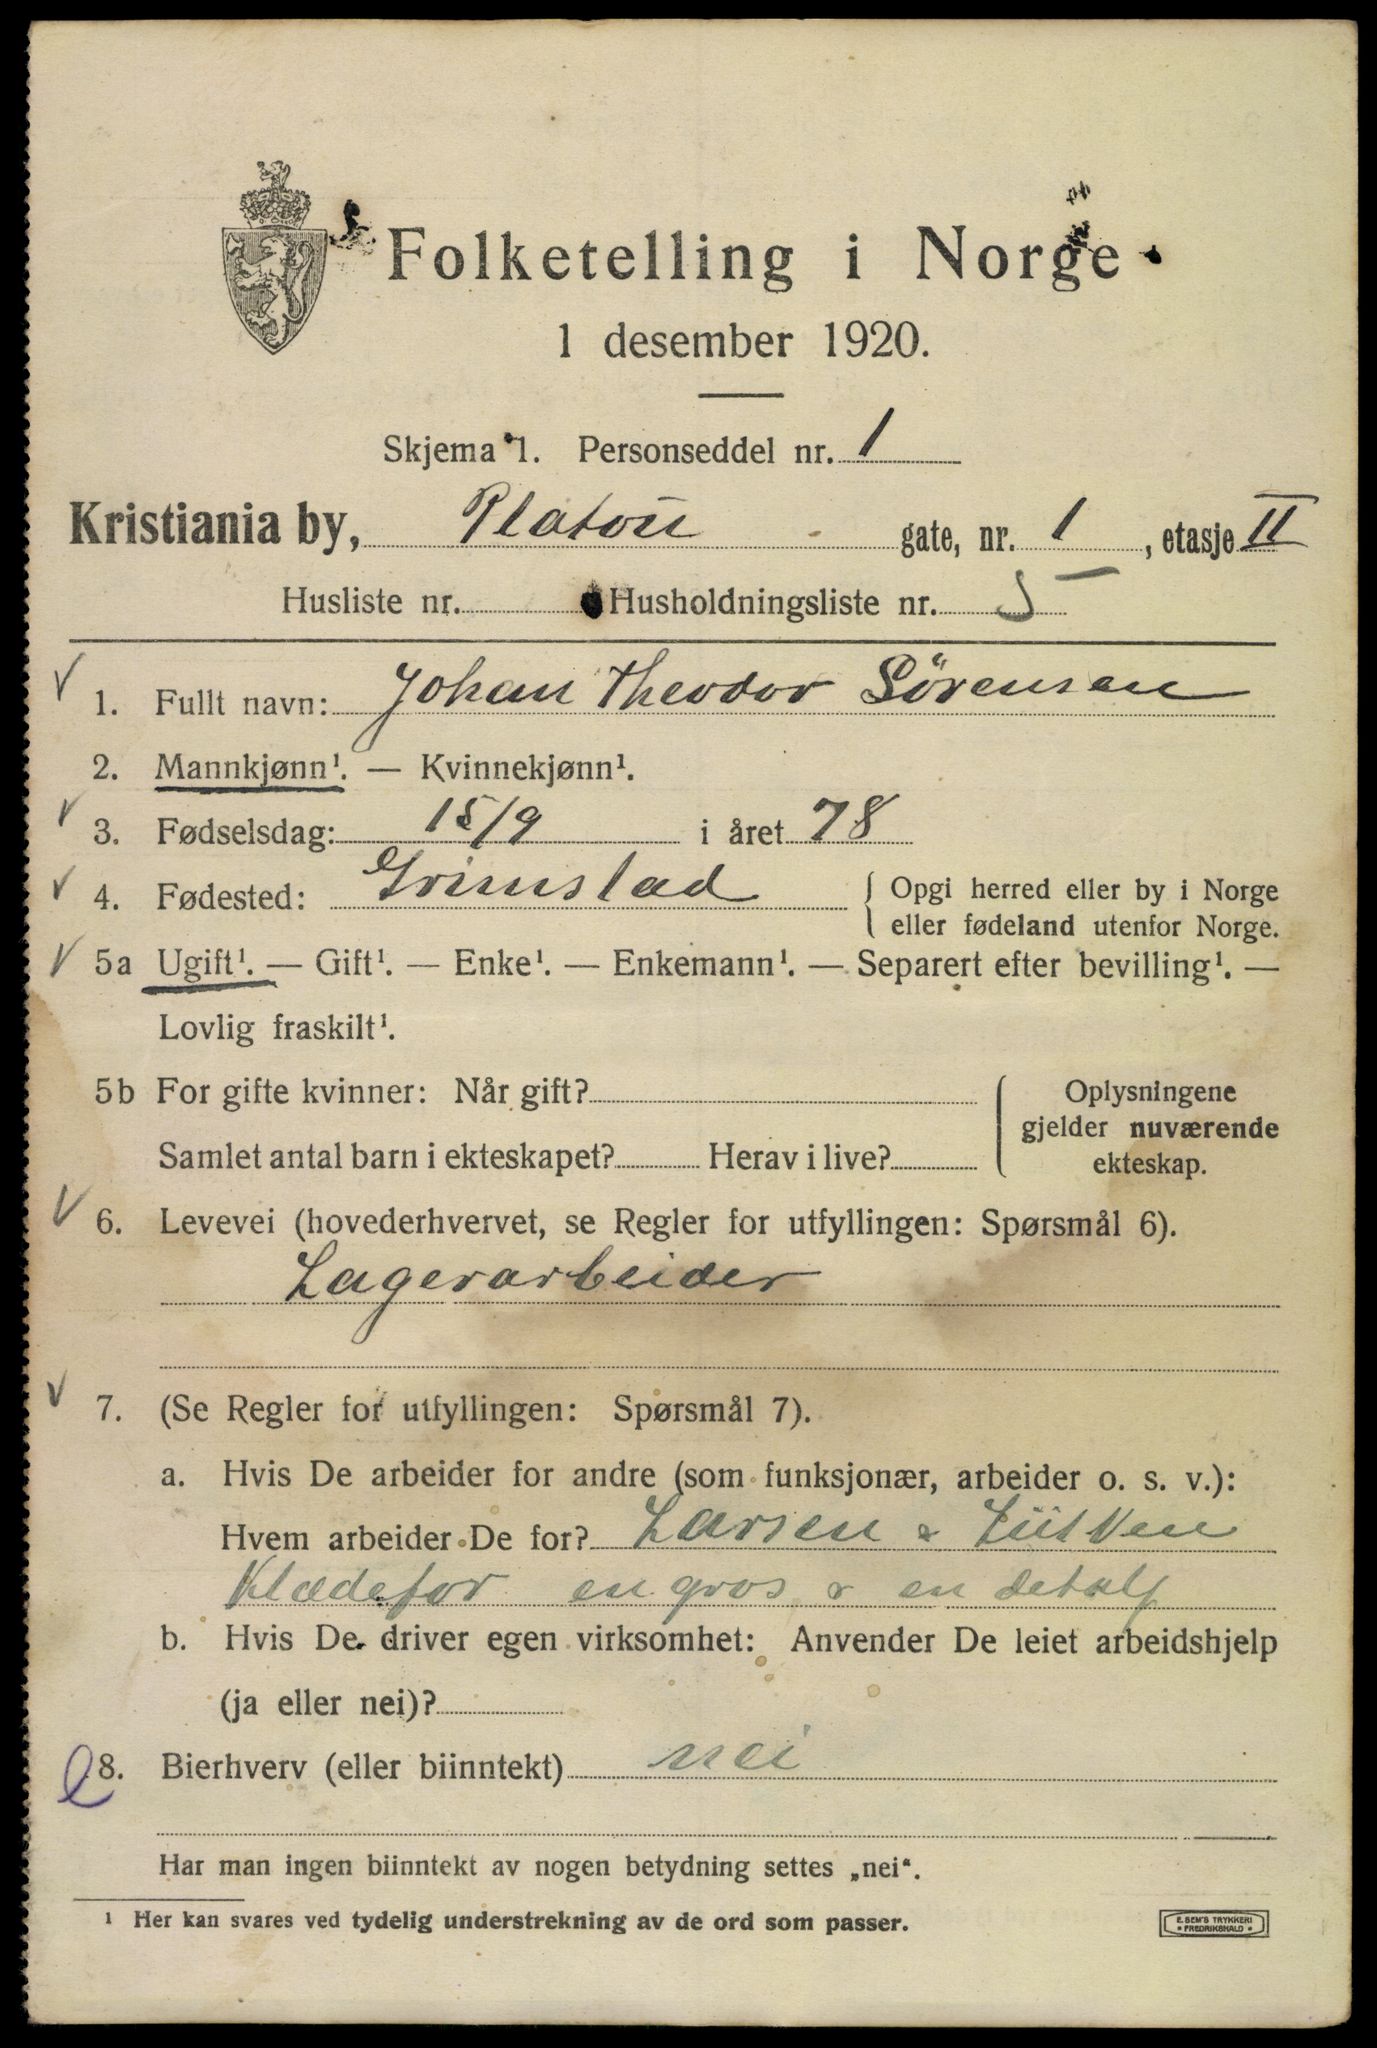 Folketelling i Norge
1 desember 1920.
Skjema 1. Personseddel nr. 1
Kristiania by, Platoŭ gate, nr. 1, etasje II
Husliste nr. Husholdningsliste nr. 5
1. Fullt navn: Johan Theodor Sörensen
2. Mannkjønn¹. — Kvinnekjønn¹.
3. Fødselsdag: 15/9 i året 78
4. Fødested: Grimstad { Opgi herred eller by i Norge
eller fødeland utenfor Norge.
5a Ugift¹. — Gift¹. — Enke¹. — Enkemann¹. — Separert efter bevilling¹. —
Lovlig fraskilt¹.
5b For gifte kvinner: Når gift?
Samlet antal barn i ekteskapet? Herav i live?
Oplysningene
gjelder nuværende
ekteskap.
6. Levevei (hovederhvervet, se Regler for utfyllingen: Spørsmål 6).
Lagerarbeider
7. (Se Regler for utfyllingen: Spørsmål 7).
a. Hvis De arbeider for andre (som funksjonær, arbeider o. s. v.):
Hvem arbeider De for? Larsen &
Klædefor en gros & en detalj
b. Hvis De driver egen virksomhet: Anvender De leiet arbeidshjelp
(ja eller nei)?
8. Bierhverv (eller biinntekt) nei
Har man ingen biinntekt av nogen betydning settes „nei“.
¹ Her kan svares ved tydelig understrekning av de ord som passer.
E. SEM'S TRYKKERI
• FREDRIKSHALD •